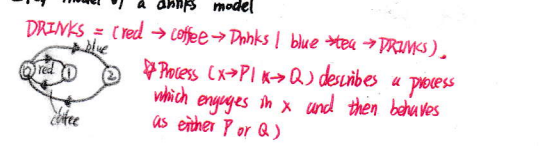 model of a drinks model
DRINKS = (red → coffee → Drinks | blue → tea → DRINKS).
blue
0 red 1 2
coffee
Process (x→P | x→Q) describes a process
which engages in x and then behaves
as either P or Q)